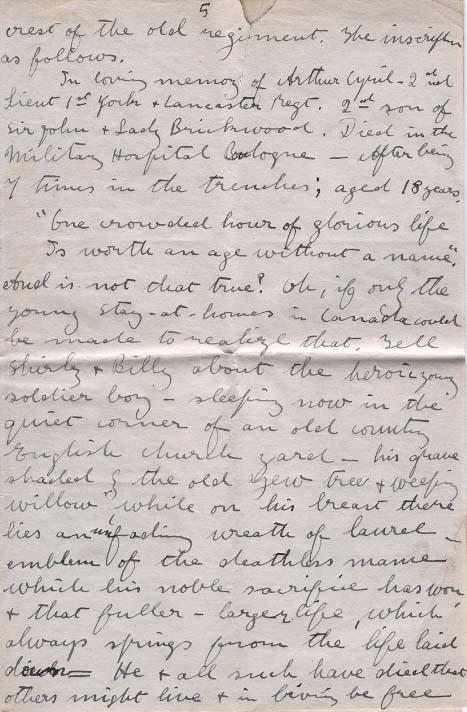 5
crest of the old regiment. The inscription
as follows.
In loving memory of Arthur Cyril - 2nd
Lieut 1st York & Lancaster Regt. 2nd son of
Sir John & Lady Brickwood. Died in the
Military Hospital Boulogne - After being
7 times in the trenches; aged 18 years.
"One crowded hour of glorious life
Is worth an age without a name".
And is not that true? Oh, if only the
young stay-at-homes in Canada could
be made to realize that. Tell
Shirly & Billy about the heroic young
soldier boy - sleeping now in the
quiet corner of an old country
English church yard - his grave
shaded by the old yew tree & weeping
willow", while on his breast there
lies an unfading wreath of laurel -
emblem of the deathless name
which his noble sacrifice has won
& that fuller - larger life, which
always springs from the life laid
down - He & all such have died that
others might live & in living be free